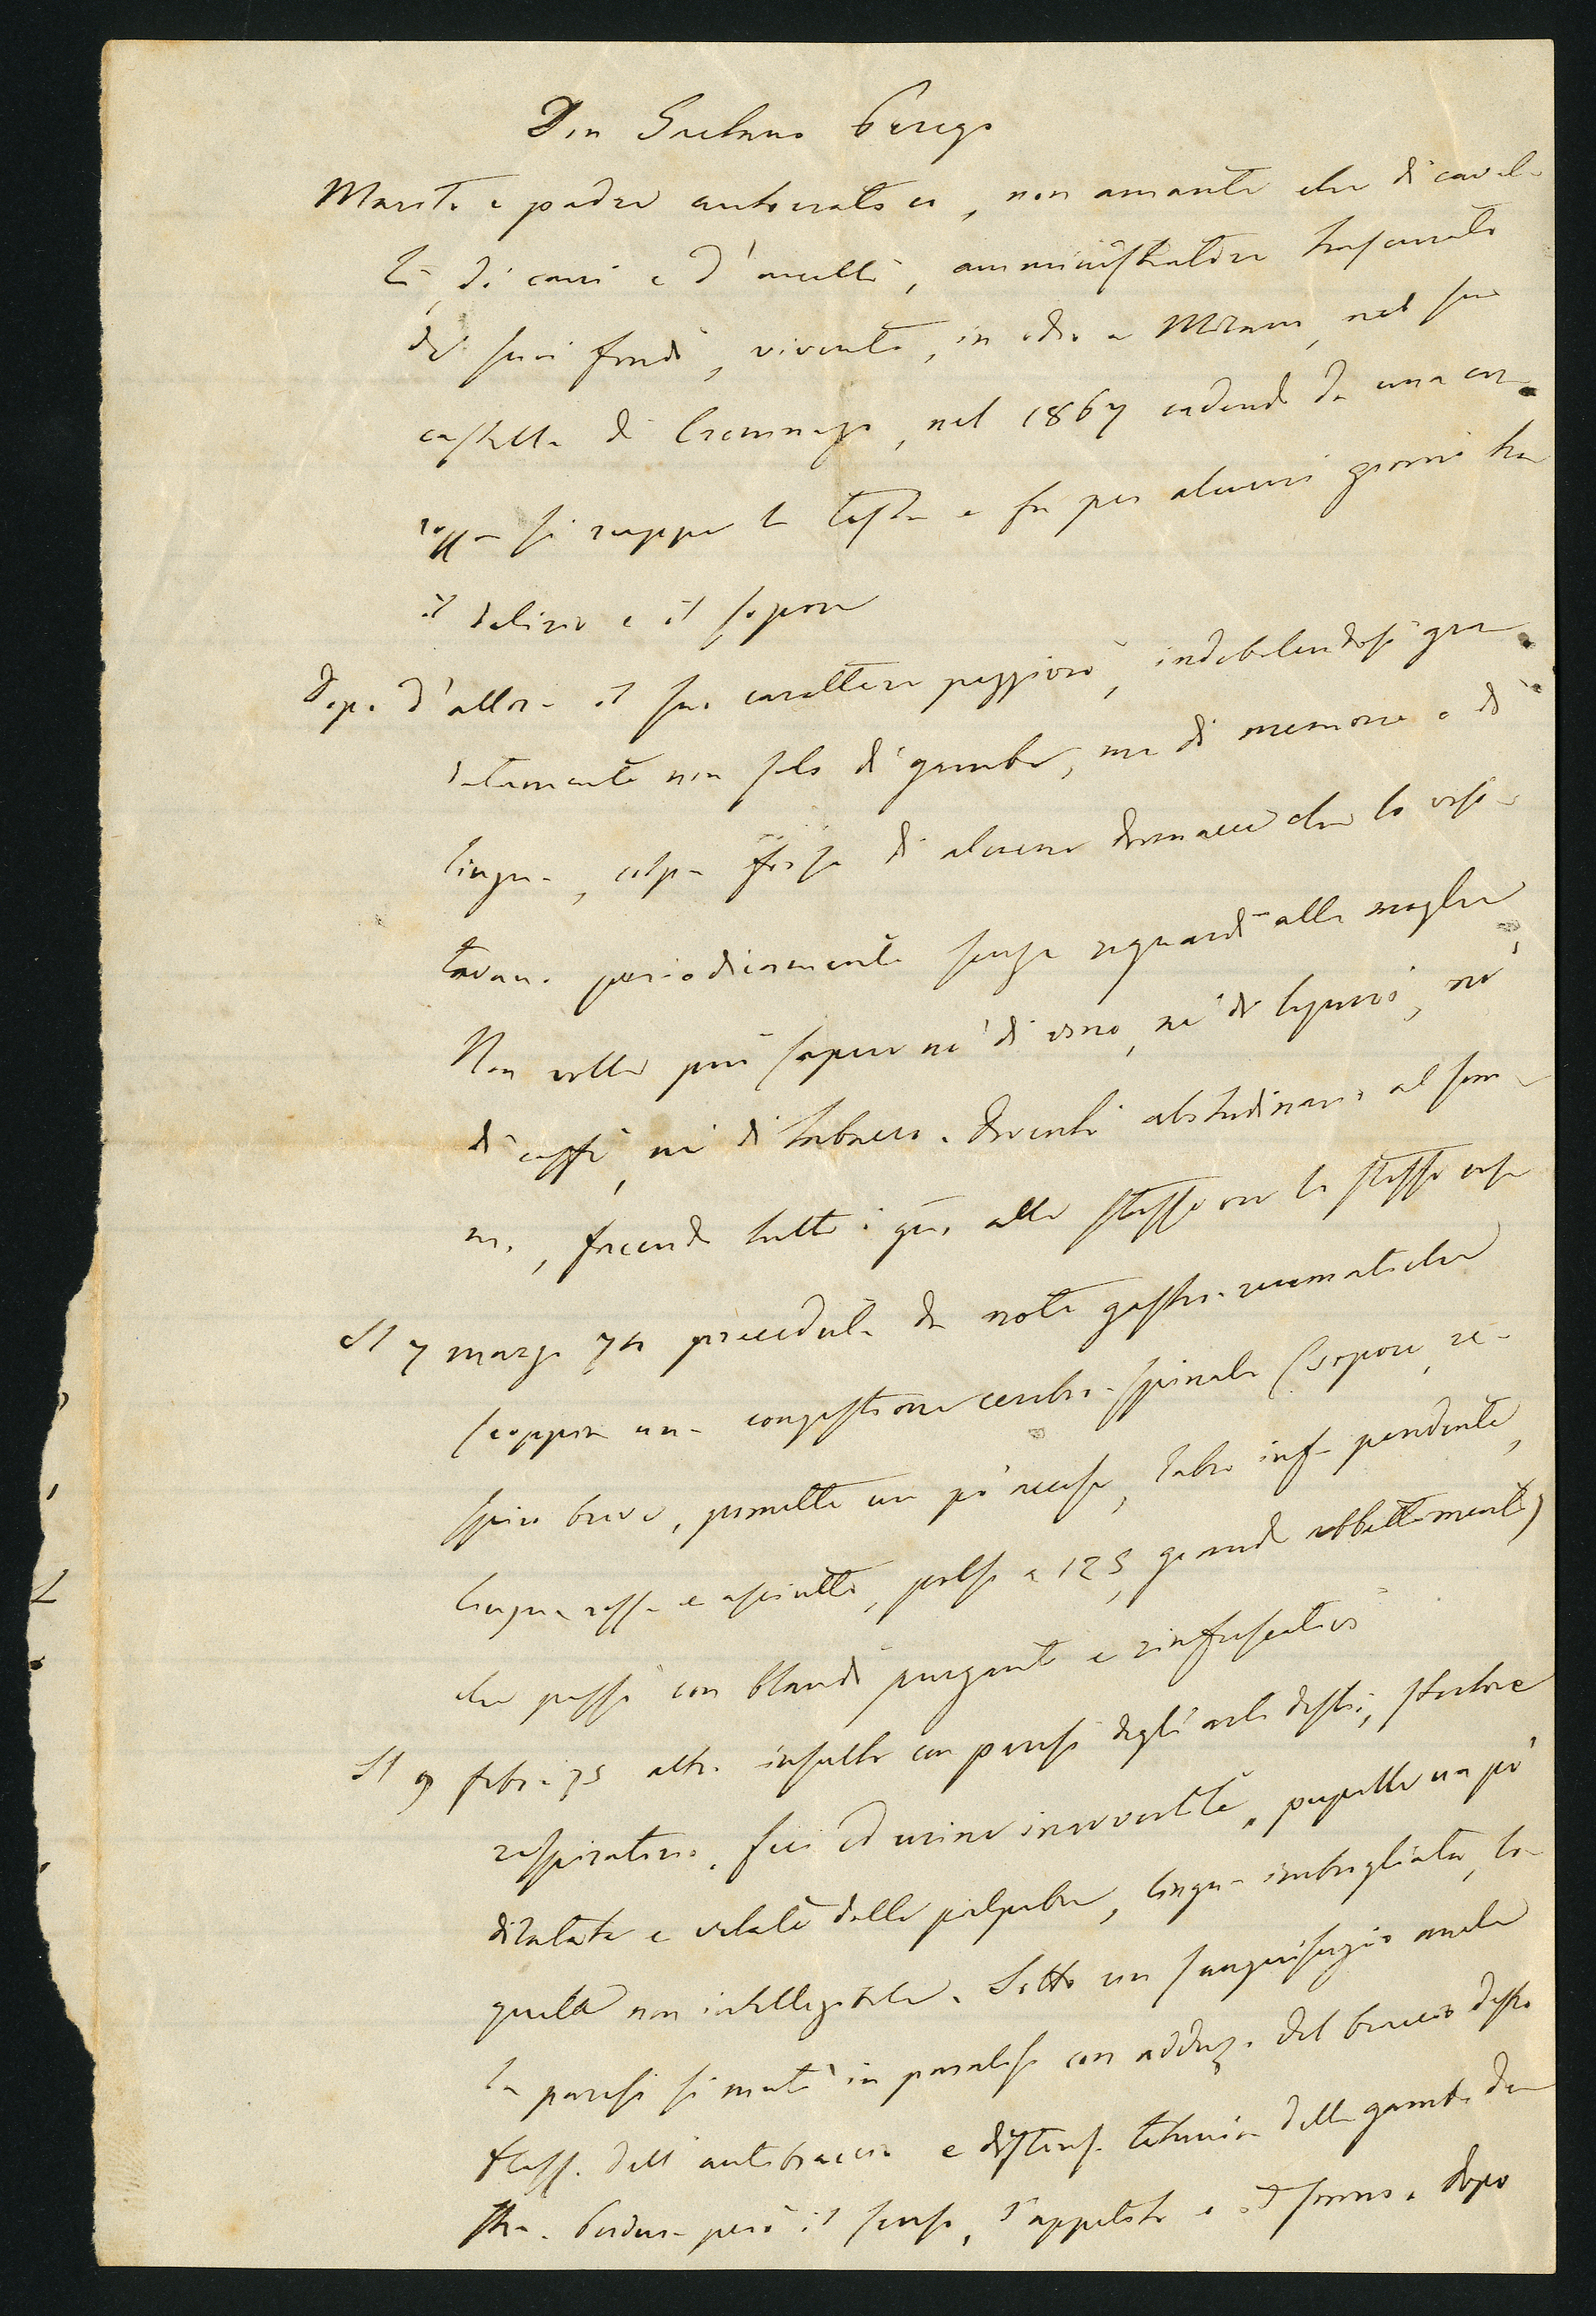 Don Gaetano Perego
Marito e padre autocratico, non amante che di caval-
li, di cani e d'uccelli, amministratore trascurato
de' suoi fondi, vivente, in odio a Milano, nel suo
castello di Cremnago, nel 1867 cadendo da una car-
rozza si ruppe la testa e fu per alcuni giorni tra
il delirio e il sopore
Dopo d'allora il suo carattere peggiorò, indebolendosi gra-
datamente non solo di gambe, ma di memoria e di
lingua, colpa forse di alcune donnacce che lo visi-
tavano periodicamente senza riguardi alla moglie
Non volle più sapere nè di vino, nè di liquori, nè
di caffè, nè di tabacco. Diventò abitudinario al som-
mo, facendo tutti i gni. alle stesse ore le stesse cose
Il 7 marzo 74 preceduta da note gastro-reumatiche
scoppia una congestione cerebro-spinale (sopore, re-
spiro breve, pomelli un po' accesi, labro inf.e pendente,
lingua rossa e asciutta, polso a 125, grande abbattimento)
che passò con blandi purganti e rinfrescativi
Il 9 febb.o 75 altro insulto con paresi degli arti destri, stertore
respiratorio, feci ed urine inavvertite, pupille un po'
dilatate e velate dalle palpebre, lingua imbrogliata, lo-
quela non intelligibile. Sotto un sanguisugio anale
la paresi si mutò in paralisi con adduz.e del braccio destro
fless. dell'antibraccio e distens. tetanica della gamba de-
stra. Perdura però il senso, l'appetito e il sonno. Dopo